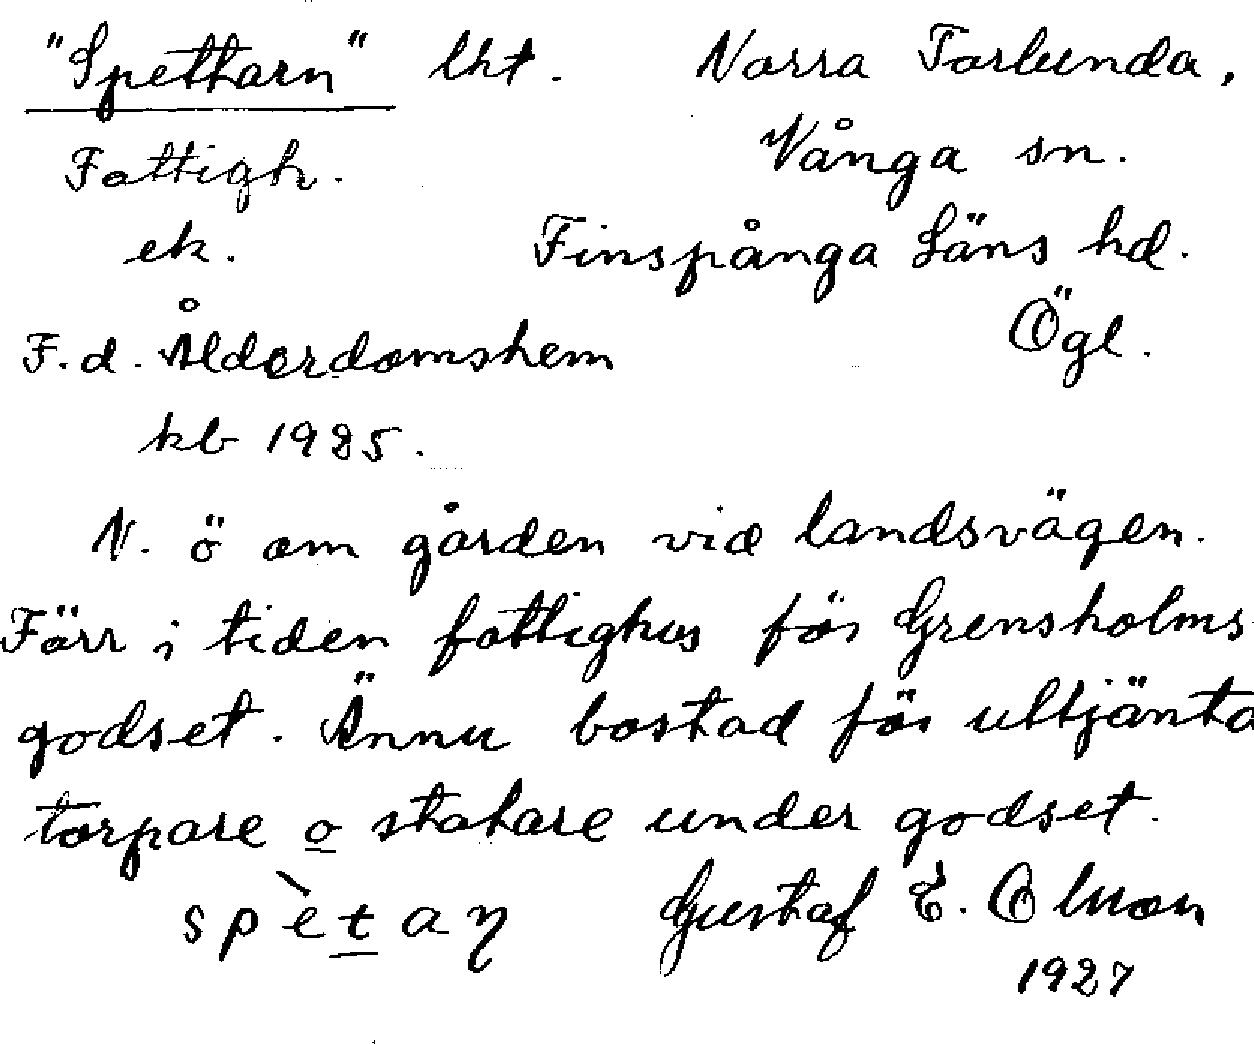 "Spettarn" lht. Norra Torlunda,
Fattigh. Vånga sn.
ek. Finspånga Läns hd.
F.d. Ålderdomshem Ögl.
kb 1925.
N. ö om gården vid landsvägen.
Förr i tiden fattighus för Grensholms-
godset. Ännu bostad för uttjänta
torpare o statare under godset.
spètaɳ Gustaf E.
1927